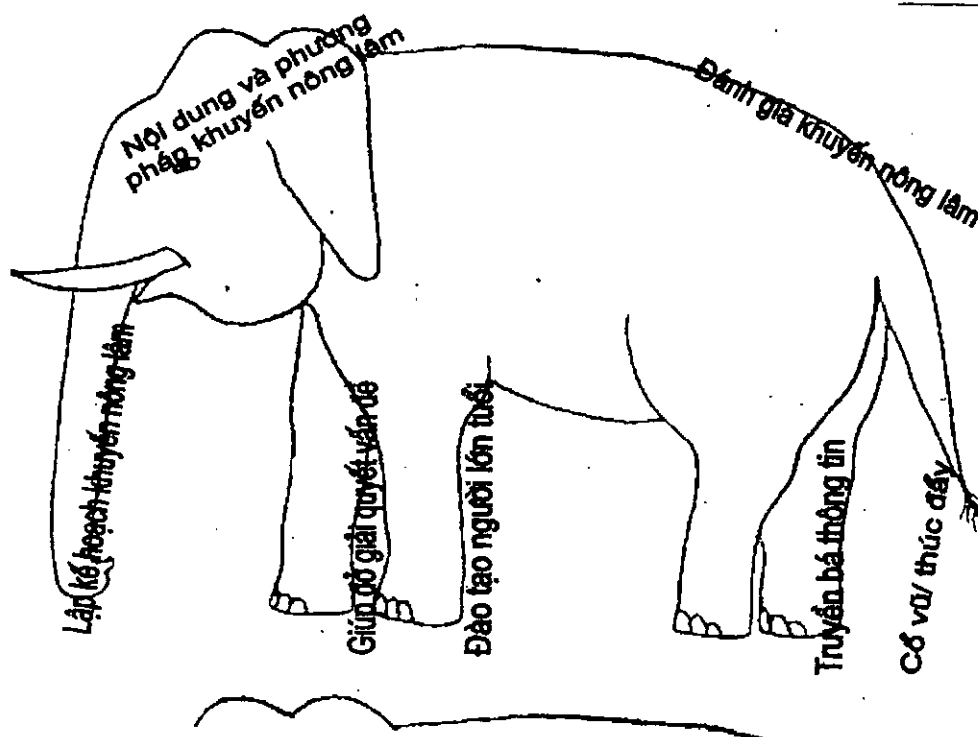 Nội dung và phương
pháp khuyến nông lâm
Đánh giá khuyến nông lâm
Lập kế hoạch khuyến nông lâm
Giúp đỡ giải quyết vấn đề
Đào tạo người lớn tuổi
Truyền bá thông tin
Cổ vũ/ thúc đẩy